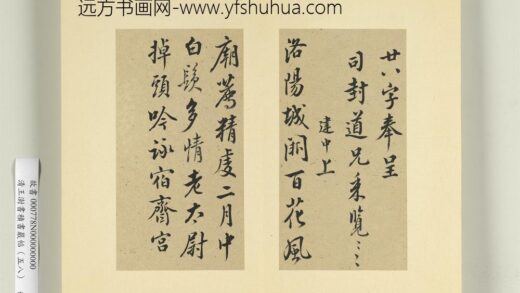 远方书画网-www.yfshuhua.com
廿八字奉呈
司封道兄采覽
建中上
洛陽城闕百花風
廟薦精虔二月中
白髮多情老太尉
掉頭吟詠宿齋宮
故書 000778N000000000
清王澍書積書巖帖（五八）